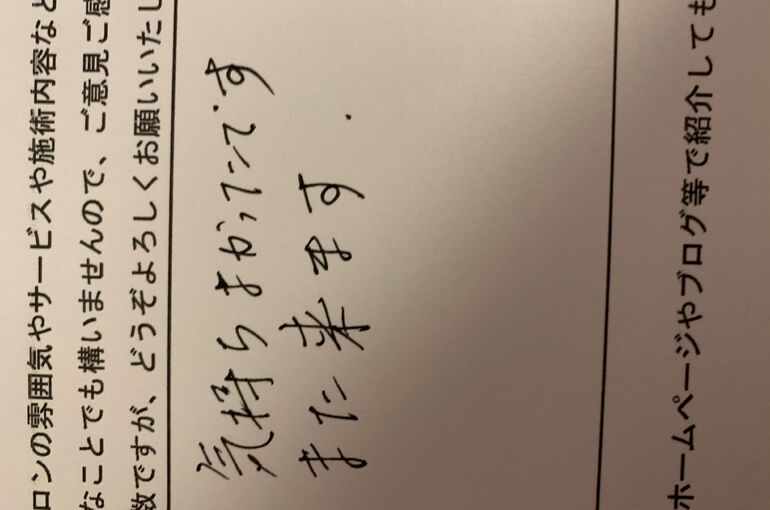 ロンの雰囲気やサービスや施術内容など
なことでも構いませんので、ご意見ご感
数ですが、どうぞよろしくお願いいたし
気持ちよかったです
また来ます.
ホームページやブログ等で紹介しても